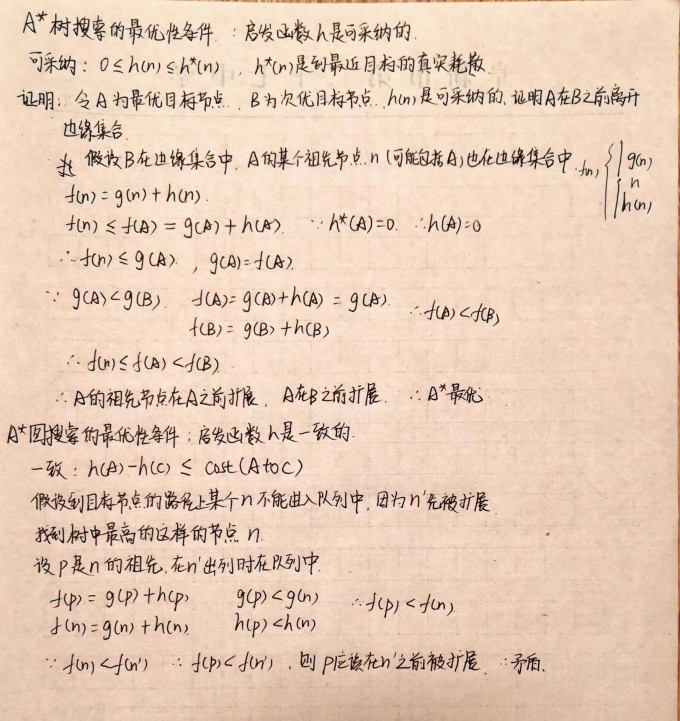 A*树搜索的最优性条件：启发函数h是可采纳的.
可采纳：0≤h(n)≤h*(n)，h*(n)是到最近目标的真实耗散
证明：令A为最优目标节点，B为次优目标节点，h(n)是可采纳的，证明A在B之前离开
边缘集合.
假设B在边缘集合中，A的某个祖先节点n(可能包括A)也在边缘集合中. f(n) { g(n) n h(n)
f(n)=g(n)+h(n).
f(n)≤f(A)=g(A)+h(A). ∵h*(A)=0. ∴h(A)=0
∴f(n)≤g(A)，g(A)=f(A).
∵g(A)<g(B). f(A)=g(A)+h(A)=g(A). ∴f(A)<f(B)
f(B)=g(B)+h(B)
∴f(n)≤f(A)<f(B)
∴A的祖先节点在A之前扩展，A在B之前扩展. ∴A*最优
A*图搜索的最优性条件：启发函数h是一致的.
一致：h(A)-h(C)≤cost(A to C)
假设到目标节点的路径上某个n不能进入队列中，因为n'先被扩展
找到树中最高的这样的节点n.
设p是n的祖先，在n'出列时在队列中.
f(p)=g(p)+h(p) g(p)<g(n) ∴f(p)<f(n)
f(n)=g(n)+h(n) h(p)<h(n)
∵f(n)<f(n') ∴f(p)<f(n')，则p应该在n'之前被扩展. ∴矛盾.